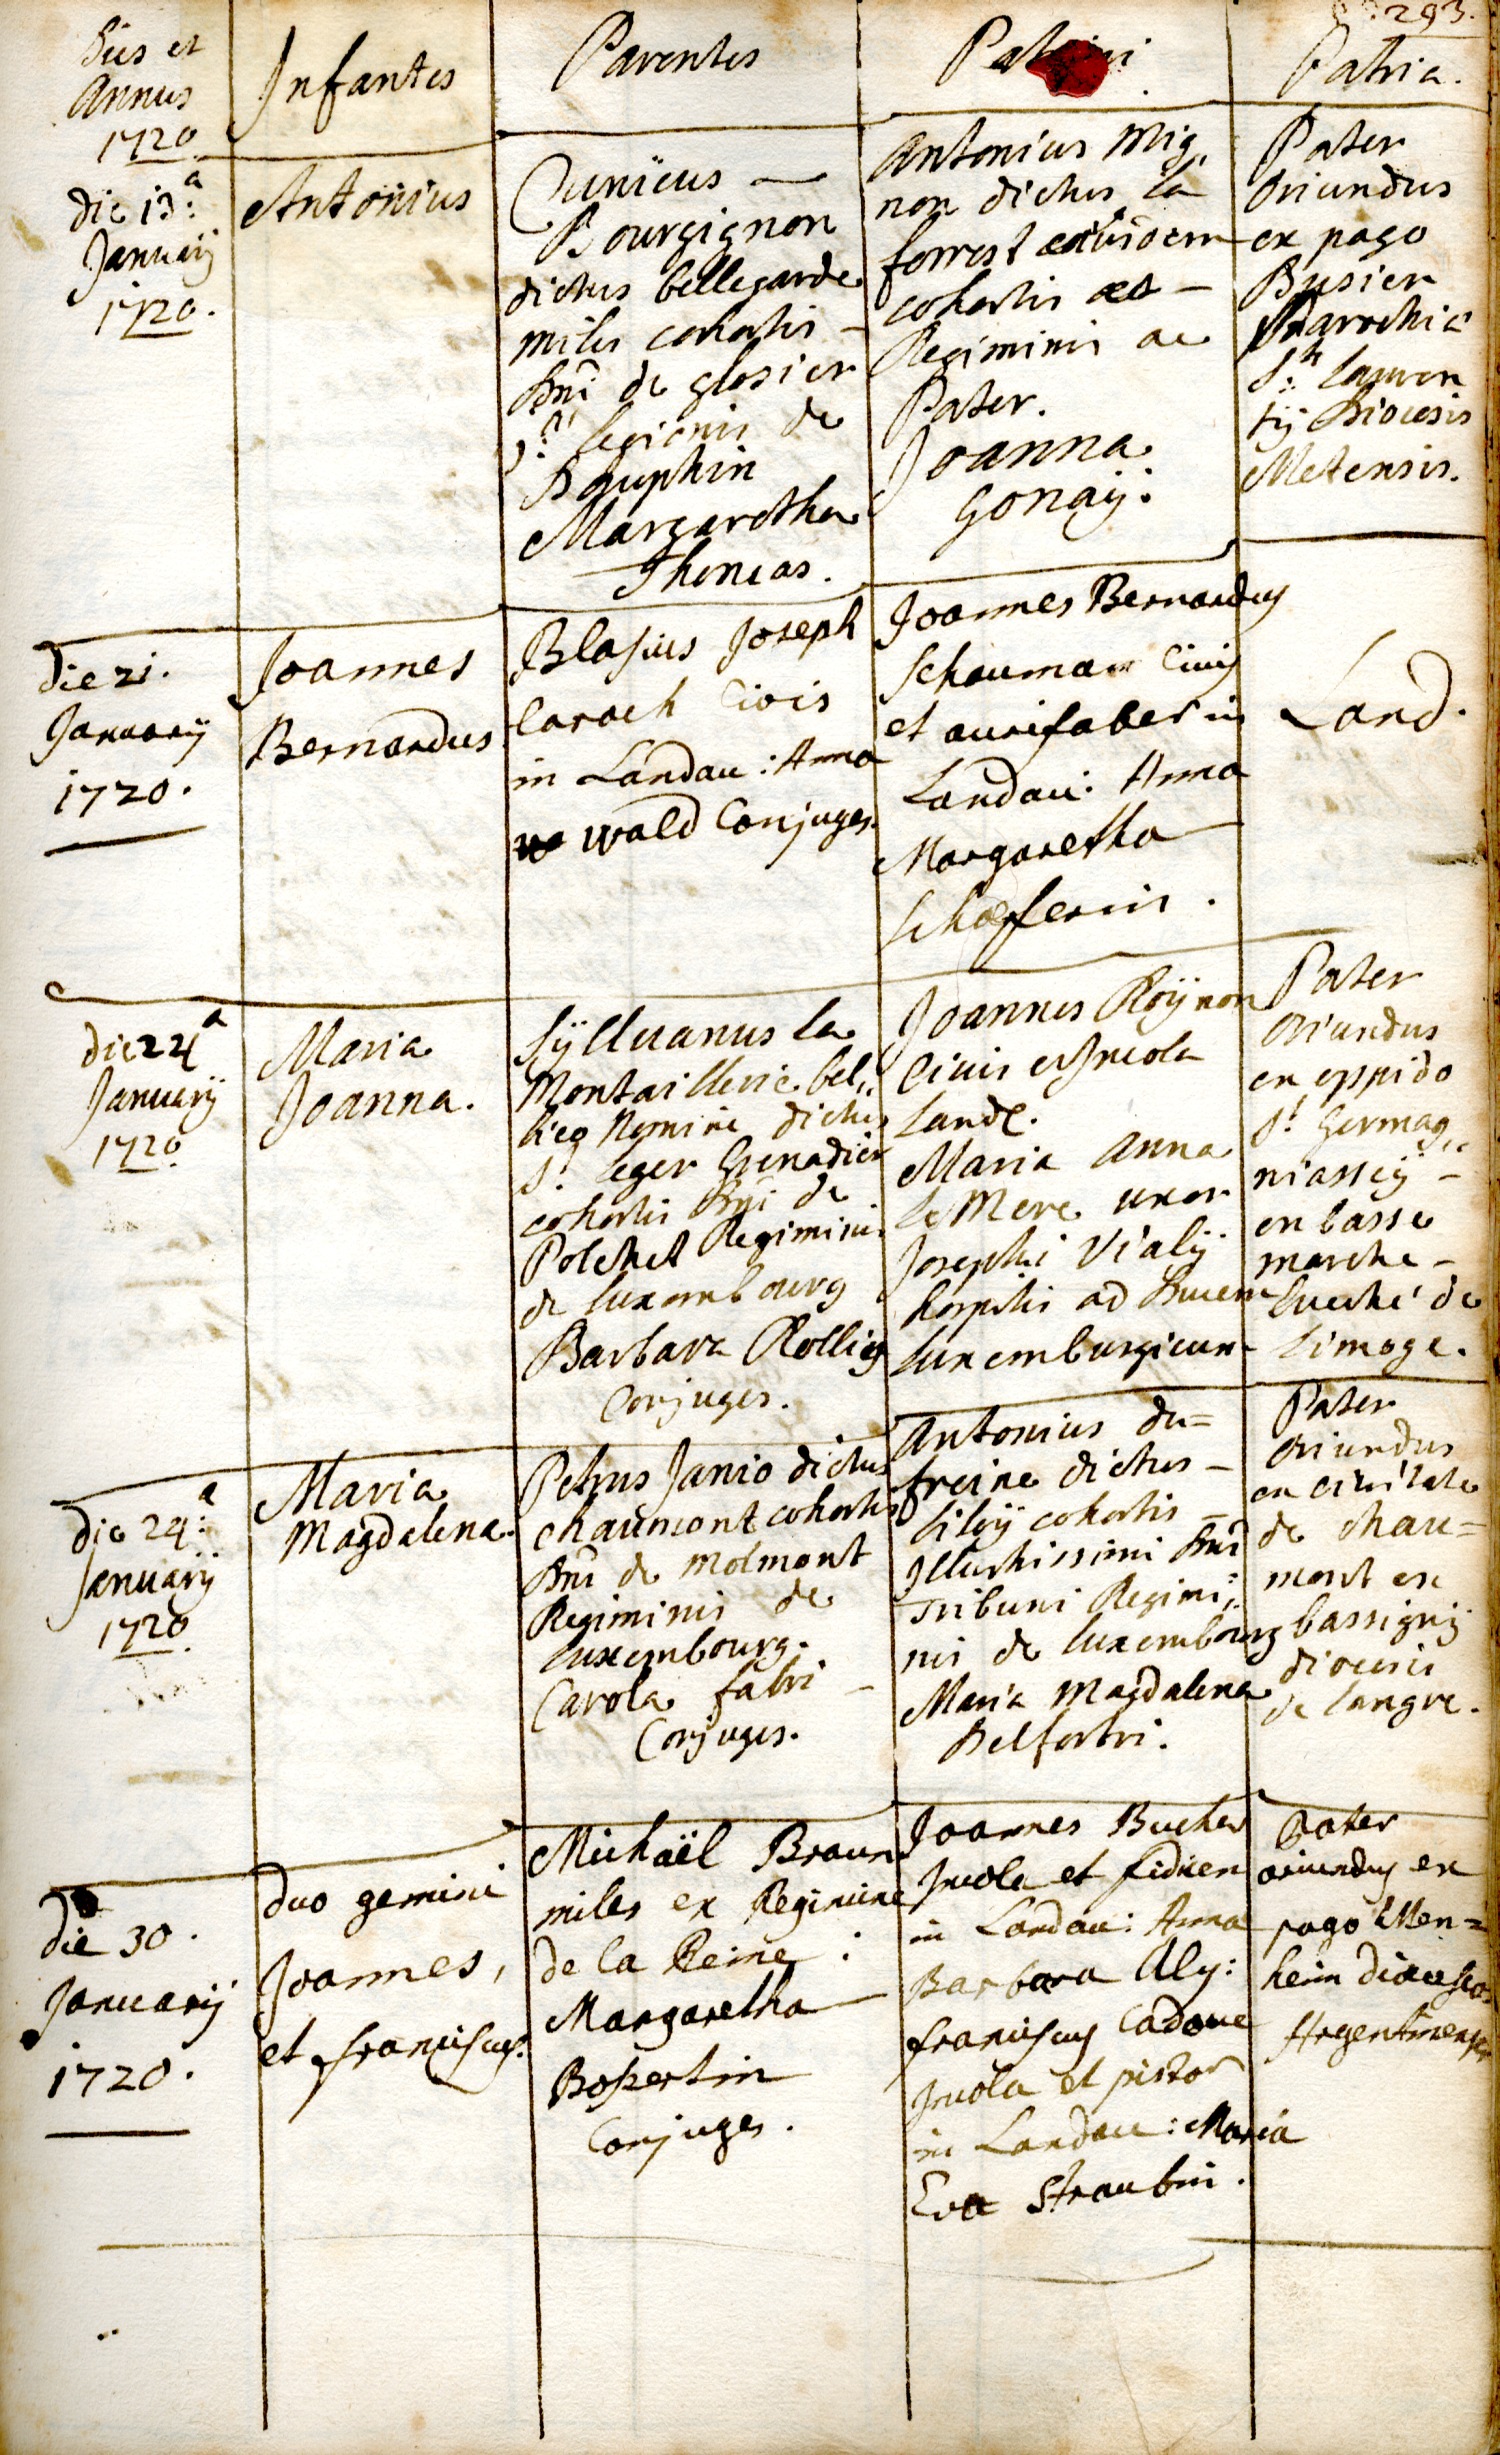 293.
Dies et
Annus
1720
Infantes
Parentes
Patrini
Patria.
die 13.a
Januarij
1720.
Antonius
Cunicus —
Bourgignon
dictus bellegarde
miles cohortis —
Dni de glosier
legionis de
Dauphin
Margaretha
Thomas.
Antonius Mig„
non dictus la
forrest
cohortis
Regiminis ac
Pater.
Joanna
Gonaÿ:
Pater
Oriundus
ex pago
Busier
Parochiæ
Sti Lauren
tij Diocesis
Metensis.
die 21.
Januarij
1720.
Joannes
Bernardus
Blasius Joseph
Caroch Civis
in Landau: Anna
wald Conjuges.
Joannes Bernardus
Schauman Civis
et aurifaber in
Landau: Anna
Margaretha
Schæferin.
Land.
die 24a
Januarij
1720
Maria
Joanna.
Sÿlluanus la
Montaillerie bel„
lico Nomine dictus
St. leger Grenadier
cohortis Dni de
Polchet Regiminis
de luxembourg
Barbara Rollig
Conjuges.
Joannes Roÿnon
Civis et Incola
Land.
Maria Anna
le Mere uxor
Josephi Vialÿ
hospitis ad Ducem
Luxemburgicum
Pater
Oriundus
ex oppido
St. Germag„
niassiÿ —
en basse
marche —
Eveché de
Limoge.
die 29.a
Januarij
1720
Maria
Magdalena.
Petrus Janio dictus
chaumont cohortis
Dni de Molmont
Regiminis de
luxembourg.
Carola fabri —
Conjuges.
Antonius du=
freine dictus —
cohortis —
Illustrissimi Dni
Tribuni Regimi„
nis de luxembourg
Maria Magdalena
Belfortri.
Pater
Oriundus
ex civitate
de chau=
mont en
bassignÿ
diocesis
de langre.
die 30.
Januarij
1720.
duo gemini
Joannes,
et franciscus.
Michaël Braun
miles ex Regimine
de la Reine:
Margaretha
Bossertin
Conjuges.
Joannes Bucher
Incola et fidicen
in Landau: Anna
Barbara Aly:
franciscus Cadoue
Incola et pistor
in Landau: Maria
Eva Straubin.
Pater
oriundus ex
pago Uten=
heim diœceseos
Argentinensis